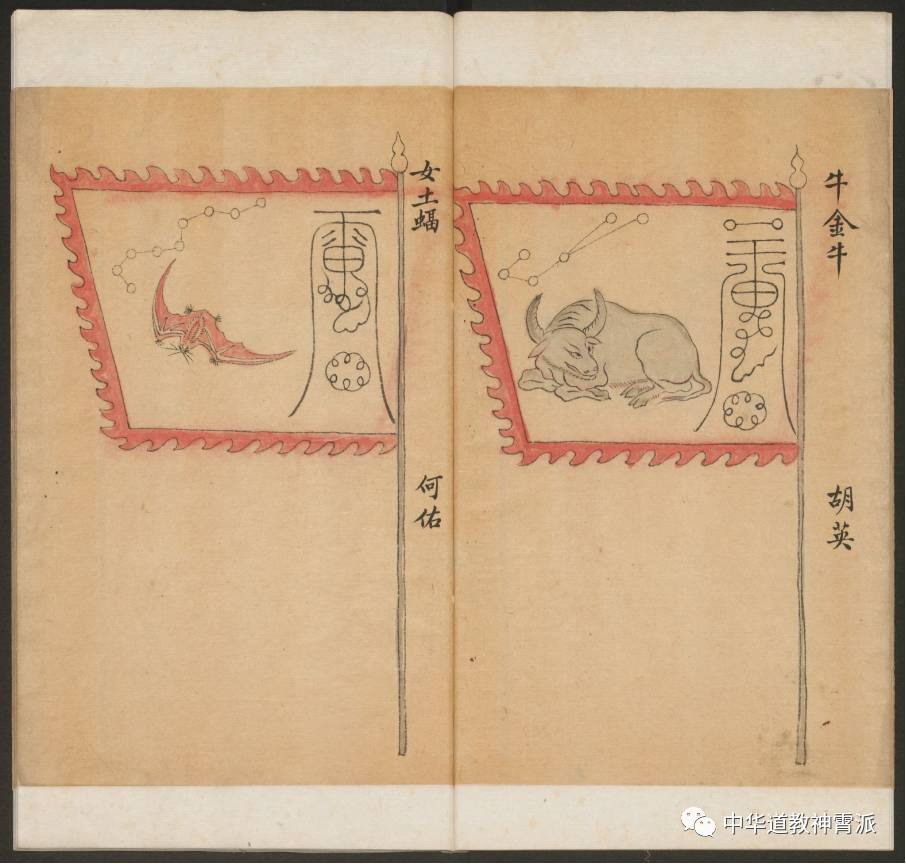 牛金牛
胡英
女土蝠
何佑
中华道教神霄派